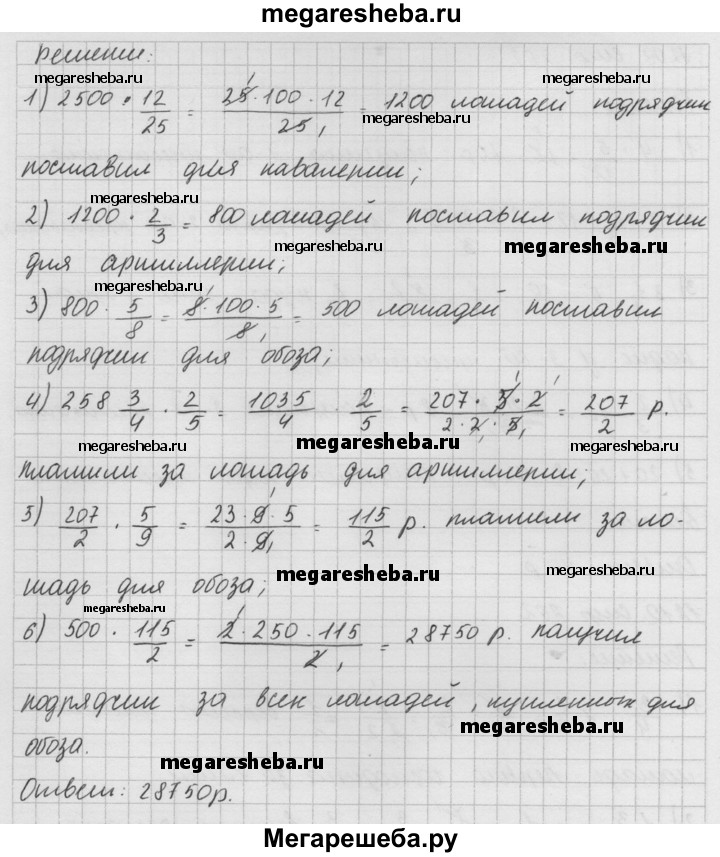 megaresheba.ru
Решение:
megaresheba.ru megaresheba.ru
1) 2500 · 12/25 = 25·100·12/25 = 1200 лошадей подрядчик
megaresheba.ru
поставил для кавалерии;
megaresheba.ru
2) 1200 · 2/3 = 800 лошадей поставил подрядчик
megaresheba.ru megaresheba.ru
для артиллерии;
megaresheba.ru
3) 800 · 5/8 = 8·100·5/8 = 500 лошадей поставил
подрядчик для обоза;
megaresheba.ru
4) 258 3/4 · 2/5 = 1035/4 · 2/5 = 207·5·2/2·2·5 = 207/2 р.
megaresheba.ru megaresheba.ru megaresheba.ru
платили за лошадь для артиллерии;
5) 207/2 · 5/9 = 23·9·5/2·9 = 115/2 р. платили за ло-
megaresheba.ru
шадь для обоза;
megaresheba.ru megaresheba.ru
megaresheba.ru
6) 500 · 115/2 = 2·250·115/2 = 28750 р. получил
подрядчик за всех лошадей, купленных для
megaresheba.ru
обоза.
megaresheba.ru
Ответ: 28750 р.
Мегарешеба.ру